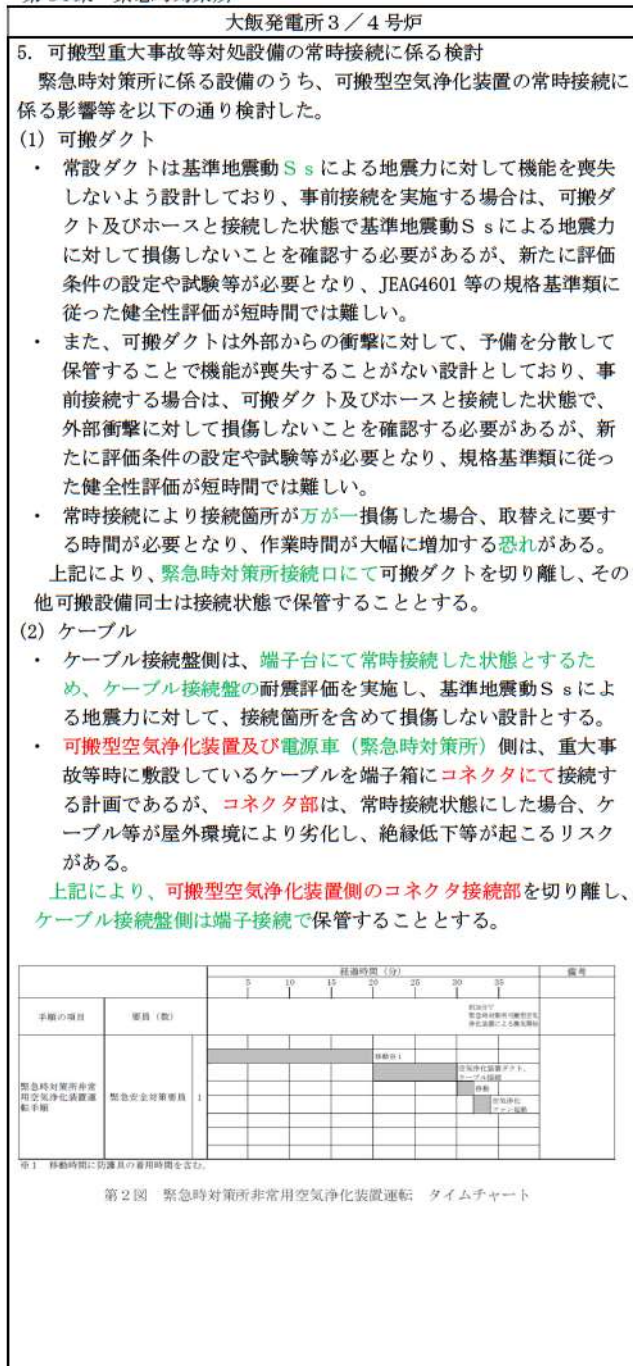 大飯発電所3／4号炉
5. 可搬型重大事故等対処設備の常時接続に係る検討
緊急時対策所に係る設備のうち、可搬型空気浄化装置の常時接続に
係る影響等を以下の通り検討した。
(1) 可搬ダクト
・ 常設ダクトは基準地震動Ｓｓによる地震力に対して機能を喪失
しないよう設計しており、事前接続を実施する場合は、可搬ダ
クト及びホースと接続した状態で基準地震動Ｓｓによる地震力
に対して損傷しないことを確認する必要があるが、新たに評価
条件の設定や試験等が必要となり、JEAG4601 等の規格基準類に
従った健全性評価が短時間では難しい。
・ また、可搬ダクトは外部からの衝撃に対して、予備を分散して
保管することで機能が喪失することがない設計としており、事
前接続する場合は、可搬ダクト及びホースと接続した状態で、
外部衝撃に対して損傷しないことを確認する必要があるが、新
たに評価条件の設定や試験等が必要となり、規格基準類に従っ
た健全性評価が短時間では難しい。
・ 常時接続により接続箇所が万が一損傷した場合、取替えに要す
る時間が必要となり、作業時間が大幅に増加する恐れがある。
上記により、緊急時対策所接続口にて可搬ダクトを切り離し、その
他可搬設備同士は接続状態で保管することとする。
(2) ケーブル
・ ケーブル接続盤側は、端子台にて常時接続した状態とするた
め、ケーブル接続盤の耐震評価を実施し、基準地震動Ｓｓによ
る地震力に対して、接続箇所を含めて損傷しない設計とする。
・ 可搬型空気浄化装置及び電源車（緊急時対策所）側は、重大事
故等時に敷設しているケーブルを端子箱にコネクタにて接続す
る計画であるが、コネクタ部は、常時接続状態にした場合、ケ
ーブル等が屋外環境により劣化し、絶縁低下等が起こるリスク
がある。
上記により、可搬型空気浄化装置側のコネクタ接続部を切り離し、
ケーブル接続盤側は端子接続で保管することとする。
経過時間（分） 備考
5 10 15 20 25 30 35
手順の項目 要員（数）
緊急時対策所可搬型空気
浄化装置による換気開始
移動※1
空気浄化装置ダクト、
ケーブル接続
移動
空気浄化
ファン起動
緊急時対策所非常
用空気浄化装置運
転手順
緊急安全対策要員 1
※1 移動時間に防護具の着用時間を含む。
第2図 緊急時対策所非常用空気浄化装置運転 タイムチャート